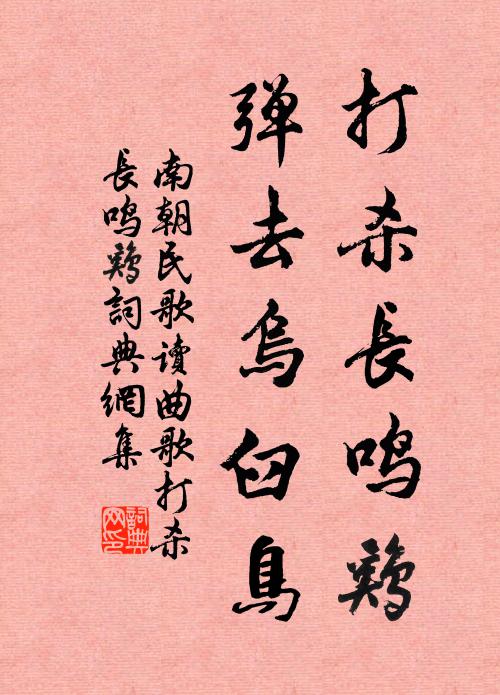 打杀長鸣鶏
弹去烏臼鳥
南朝民歌讀曲歌打杀
長鸣鶏詞典網集
詞典
网印